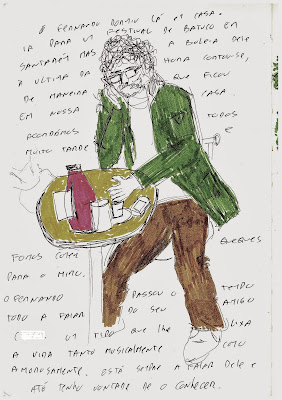 O FERNANDO DORMIU LÁ EM CASA.
IA PARA UM FESTIVAL DE BATUCO EM
SANTARÉM MAS A BOLEIA DELE
À ÚLTIMA DA HORA CORTOU-SE,
DE MANEIRA QUE FICOU
EM NOSSA CASA.
ACORDÁMOS TODOS
MUITO TARDE E
FOMOS COMER QUEQUES
PARA O MIRU.
O FERNANDO PASSOU O TEMPO
TODO A FALAR DO SEU AMIGO
UM TIPO QUE LHE LIXA
A VIDA TANTO MUSICALMENTE COMO
AMOROSAMENTE. ESTÁ SEMPRE A FALAR DELE E
ATÉ TENHO VONTADE DE O CONHECER.